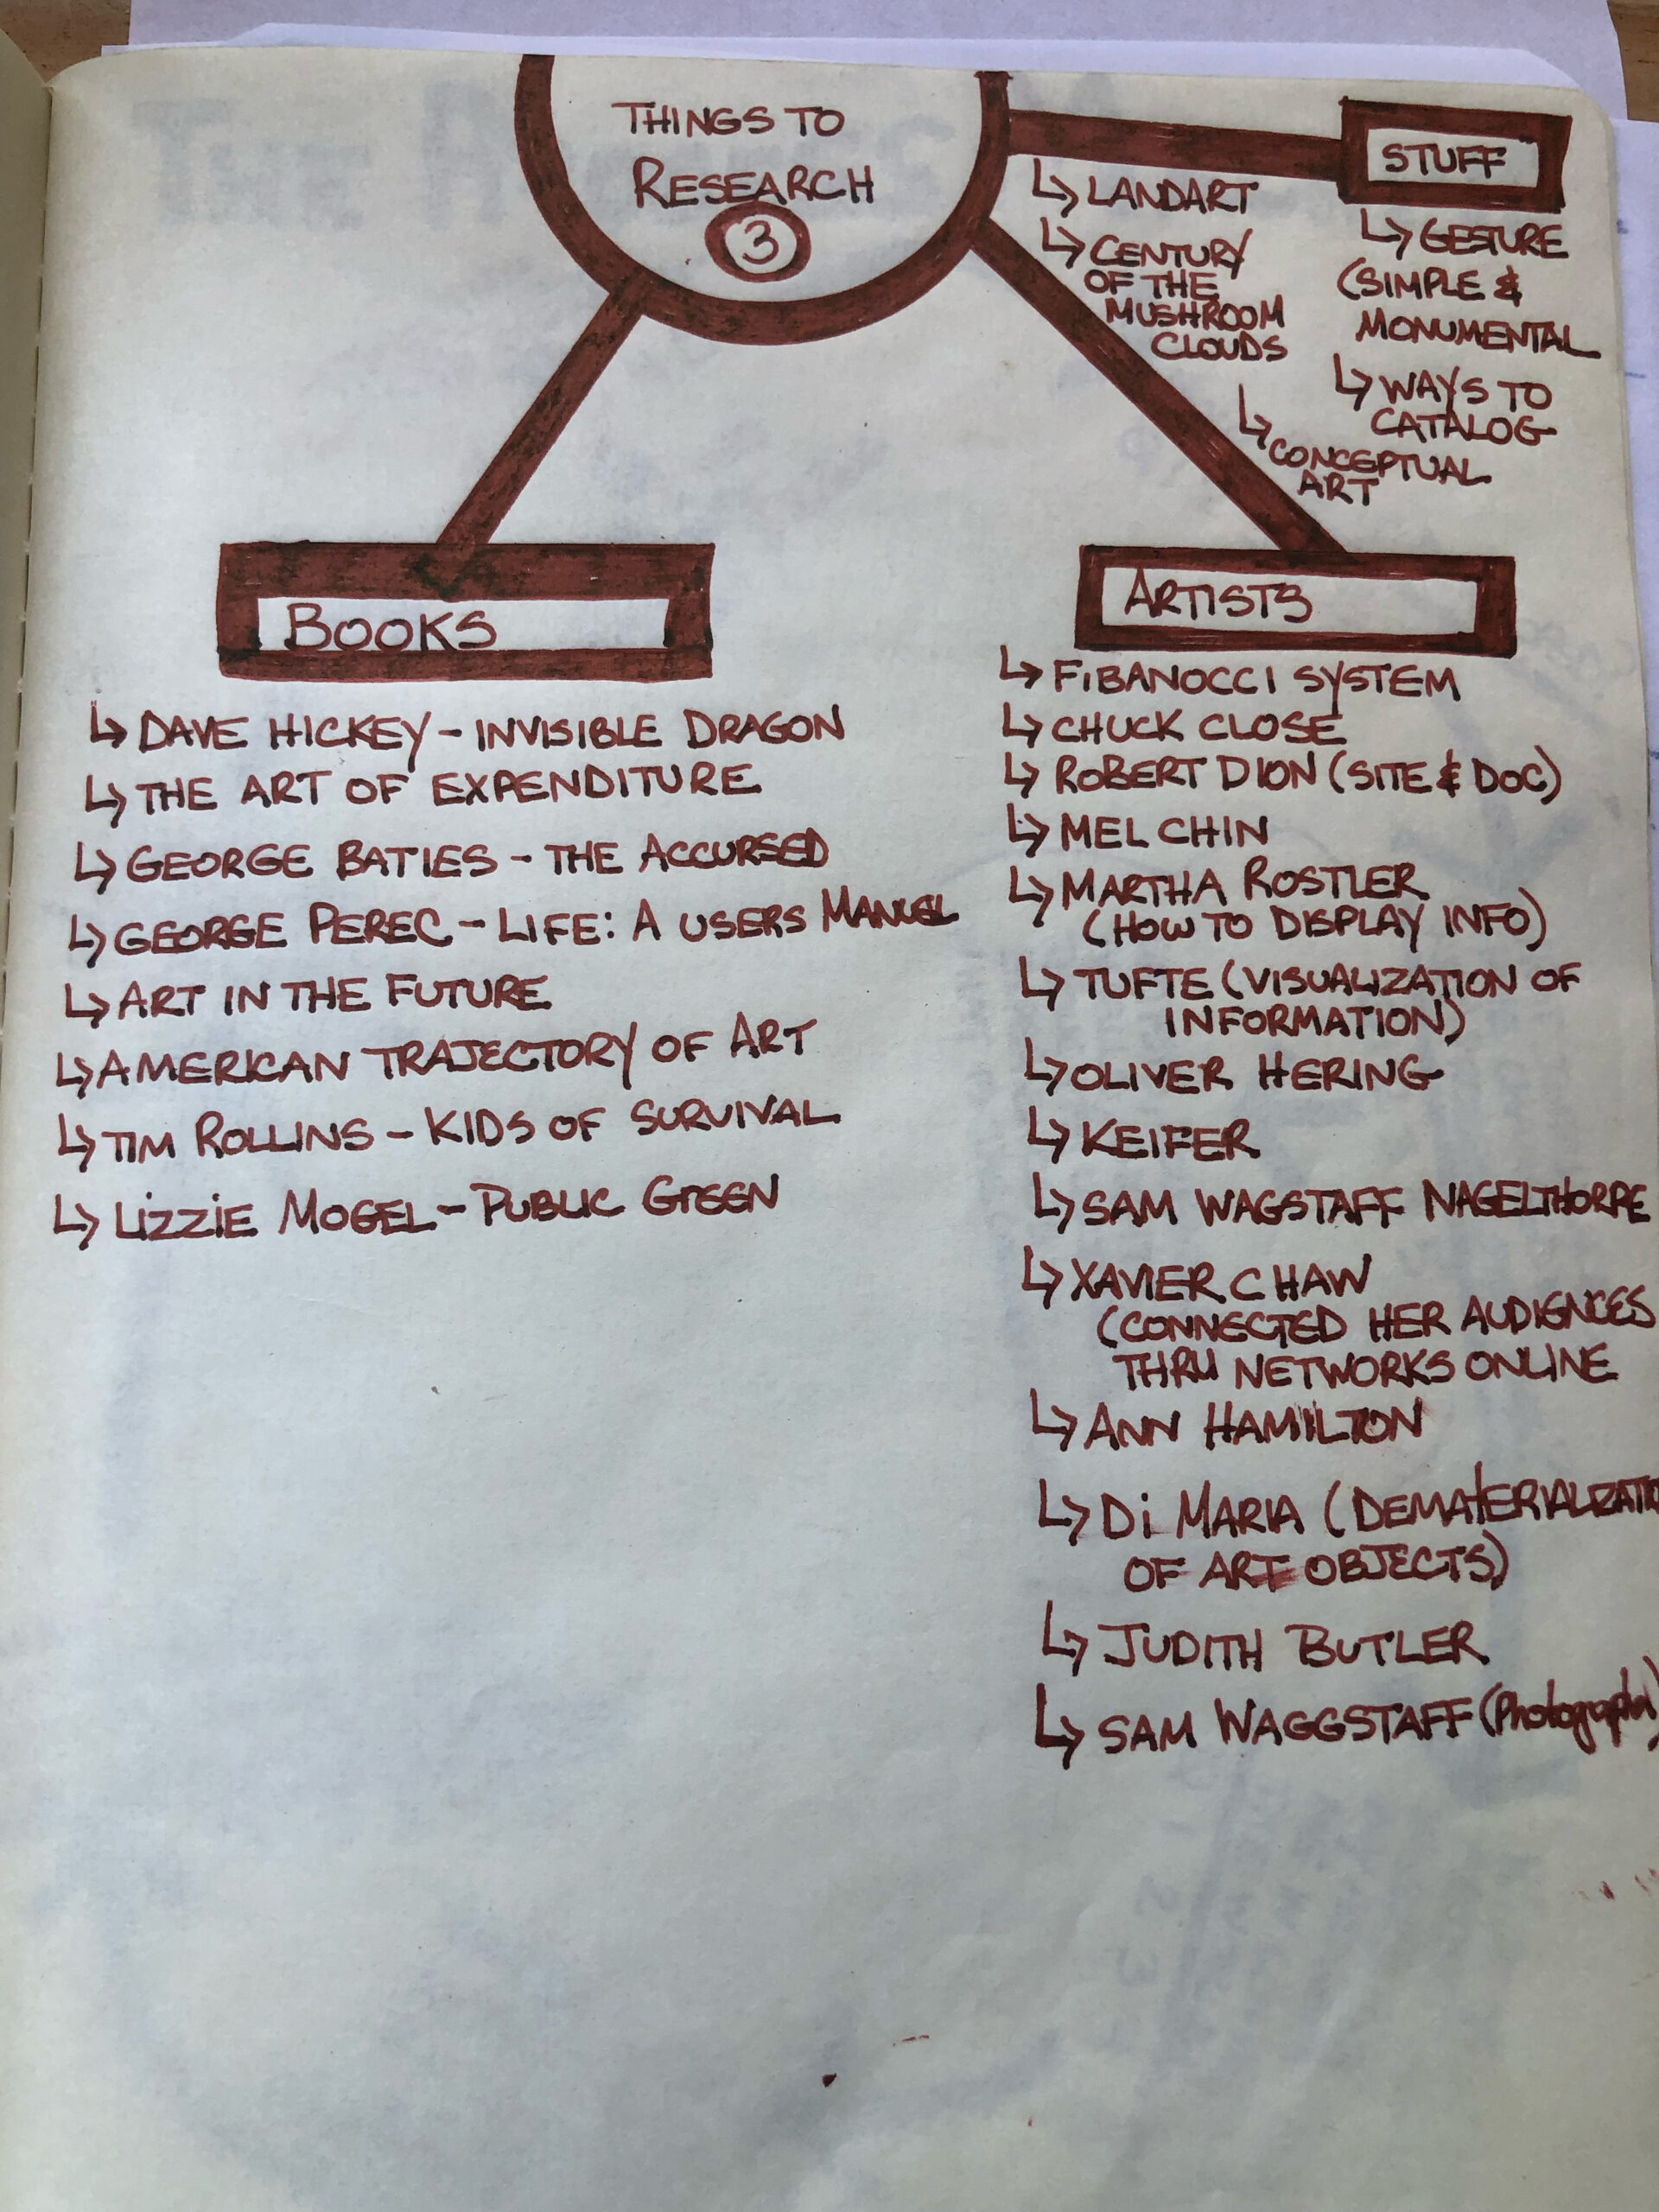 THINGS TO
RESEARCH
3
STUFF
↳ LANDART
↳ CENTURY
OF THE
MUSHROOM
CLOUDS
↳ CONCEPTUAL
ART
↳ GESTURE
(SIMPLE &
MONUMENTAL
↳ WAYS TO
CATALOG
BOOKS
↳ DAVE HICKEY - INVISIBLE DRAGON
↳ THE ART OF EXPENDITURE
↳ GEORGE BATIES - THE ACCURSED
↳ GEORGE PEREC - LIFE: A USERS MANUEL
↳ ART IN THE FUTURE
↳ AMERICAN TRAJECTORY OF ART
↳ TIM ROLLINS - KIDS OF SURVIVAL
↳ LIZZIE MOGEL - PUBLIC GREEN
ARTISTS
↳ FIBANOCCI SYSTEM
↳ CHUCK CLOSE
↳ ROBERT DION (SITE & DOC)
↳ MEL CHIN
↳ MARTHA ROSTLER
(HOW TO DISPLAY INFO)
↳ TUFTE (VISUALIZATION OF
INFORMATION)
↳ OLIVER HERING
↳ KEIFER
↳ SAM WAGSTAFF NAGELTHORPE
↳ XAVIER CHAW
(CONNECTED HER AUDIENCES
THRU NETWORKS ONLINE
↳ ANN HAMILTON
↳ Di MARIA (DEMATERIALIZATIO
OF ART OBJECTS)
↳ JUDITH BUTLER
↳ SAM WAGGSTAFF (Photographer)